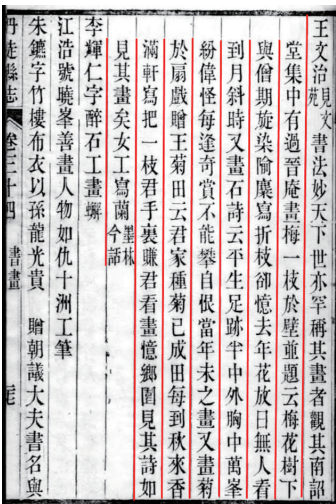 王文治見文苑書法妙天下世亦罕稱其畫者觀其南詔
堂集中有過晉庵畫梅一枝於壁並題云梅花樹下
與僧期旋染隃麋寫折枝卻憶去年花放日無人看
到月斜時又畫石詩云平生足跡半中外胸中萬峯
紛偉怪每逢奇賞不能攀自恨當年未之畫又畫菊
於扇戲贈王菊田云君家種菊已成田每到秋來香
滿軒寫把一枝君手裏賺君看畫憶鄉園見其詩如
見其畫矣女工寫蘭墨林今話
李輝仁字醉石工畫蠏
江浩號曉峯善畫人物如仇十洲工筆
朱鑣字竹樓布衣以孫龍光貴 贈朝議大夫書名與
丹徒縣志 卷三十四 書畫